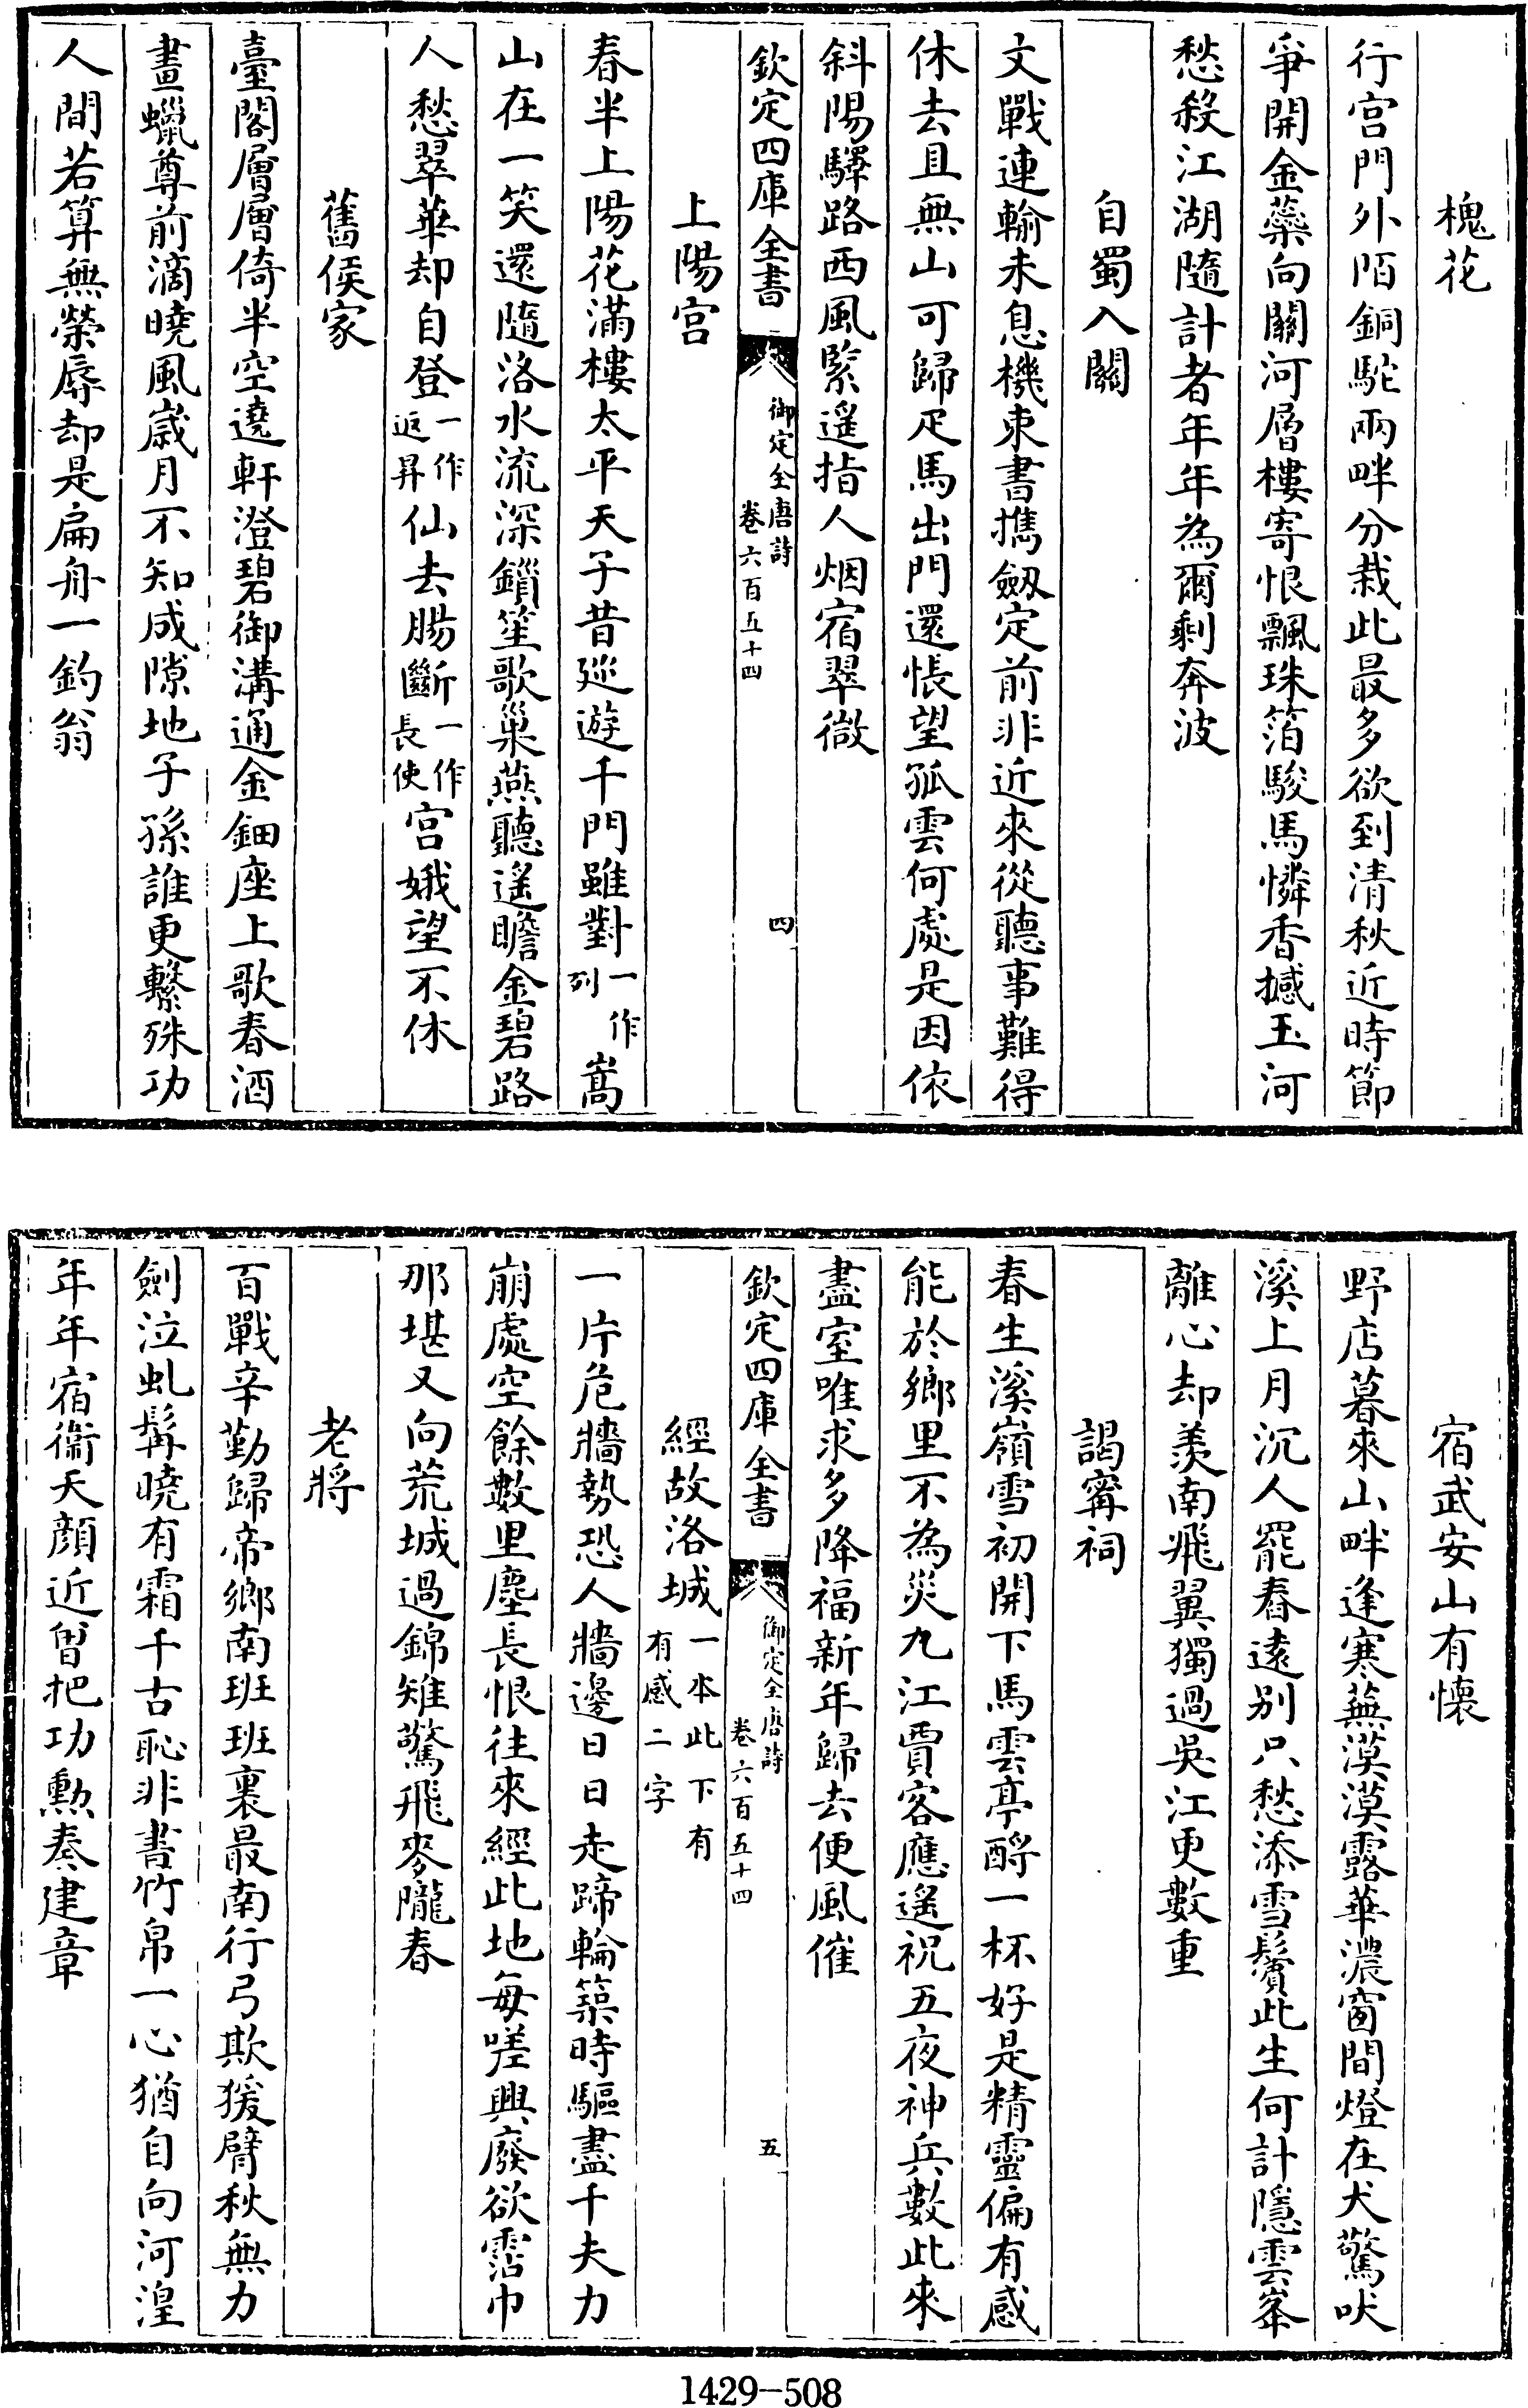 槐花
行宫門外陌銅駝兩畔分栽此最多欲到清秋近時節
爭開金蘂向關河層樓寄恨飄珠箔駿馬憐香撼玉河
愁殺江湖隨計者年年為爾剩奔波
自蜀入關
文戰連輸未息機束書擕劔定前非近來從聽事難得
休去且無山可歸疋馬出門還悵望孤雲何處是因依
斜陽驛路西風緊遥指人烟宿翠微
欽定四庫全書
御定全唐詩
卷六百五十四
四
上陽宫
春半上陽花滿樓太平天子昔廵遊千門雖對一作列嵩
山在一笑還隨洛水流深鎻笙歌巢燕聽遥瞻金碧路
人愁翠華却自登一作返昇仙去腸斷一作長使宫娥望不休
舊侯家
臺閣層層倚半空遶軒澄碧御溝通金鈿座上歌春酒
畫蠟尊前滴曉風歲月不知成隙地子孫誰更繫殊功
人間若算無榮辱却是扁舟一釣翁
宿武安山有懷
野店暮來山畔逢寒蕪漠漠露華濃窗間燈在犬驚吠
溪上月沉人罷舂遠别只愁添雪鬢此生何計隱雲峯
離心却羨南飛翼獨過吳江更數重
謁甯祠
春生溪嶺雪初開下馬雲亭酹一杯好是精靈偏有感
能於鄉里不為災九江賈客應遥祝五夜神兵數此來
盡室唯求多降福新年歸去便風催
欽定四庫全書
御定全唐詩
卷六百五十四
五
經故洛城一本此下有有感二字
一片危牆勢恐人牆邊日日走蹄輪築時驅盡千夫力
崩處空餘數里塵長恨往來經此地每嗟興廢欲霑巾
那堪又向荒城過錦雉驚飛麥隴春
老將
百戰辛勤歸帝鄉南班班裏最南行弓欺猨臂秋無力
劍泣虬髯曉有霜千古恥非書竹帛一心猶自向河湟
年年宿衞天顔近曾把功勲奏建章
1429-508